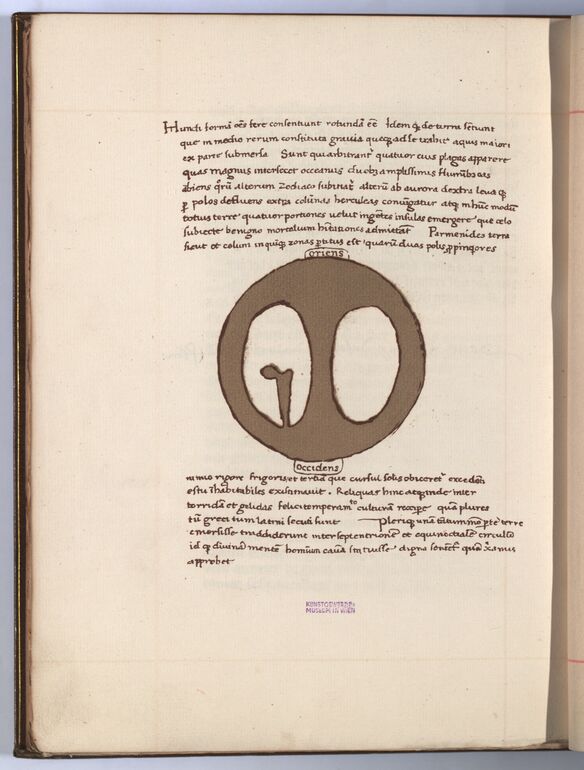 Mundi formā oēs fere consentiunt rotundā eē Idem q; de terra sētiunt
que in medio rerum constituta gravia quecq; ad se trahit aquis maiori
ex parte submersa Sunt qui arbitrant quatuor eius plagas apparere
quas magnus intersecet oceanus duob; amplissimis
alterum Zodiaco alterū ab aurora dextra leva q;
p polos defluens extra colūnas herculeas coniūgatur atq;
totius terre quatuor portiones velut ingētes insulas emergere que celo
subiecte benigno mortalium hītationes admittāt Parmenides terrā
sicut et celum in quiq; zonas est quarū duas polis ppinqores
oriens
occidens
nimio rigore frigoris et tertiā que cursui solis obiceret excedēti
estu ihabitabiles existimavit. Reliquas hinc atq; inde inter
torridā et gelidas felici temperamto culturā recipe quā plures
tū greci tum latini secuti sunt Pleriq; unā tūtummo pte terre
emersisse tradiderunt inter septentrionē et equinoctialē circulū
id q; divinā mentē hominum causa statuisse digna
approbet
KUNSTGEWERBE
MUSEUM IN WIEN